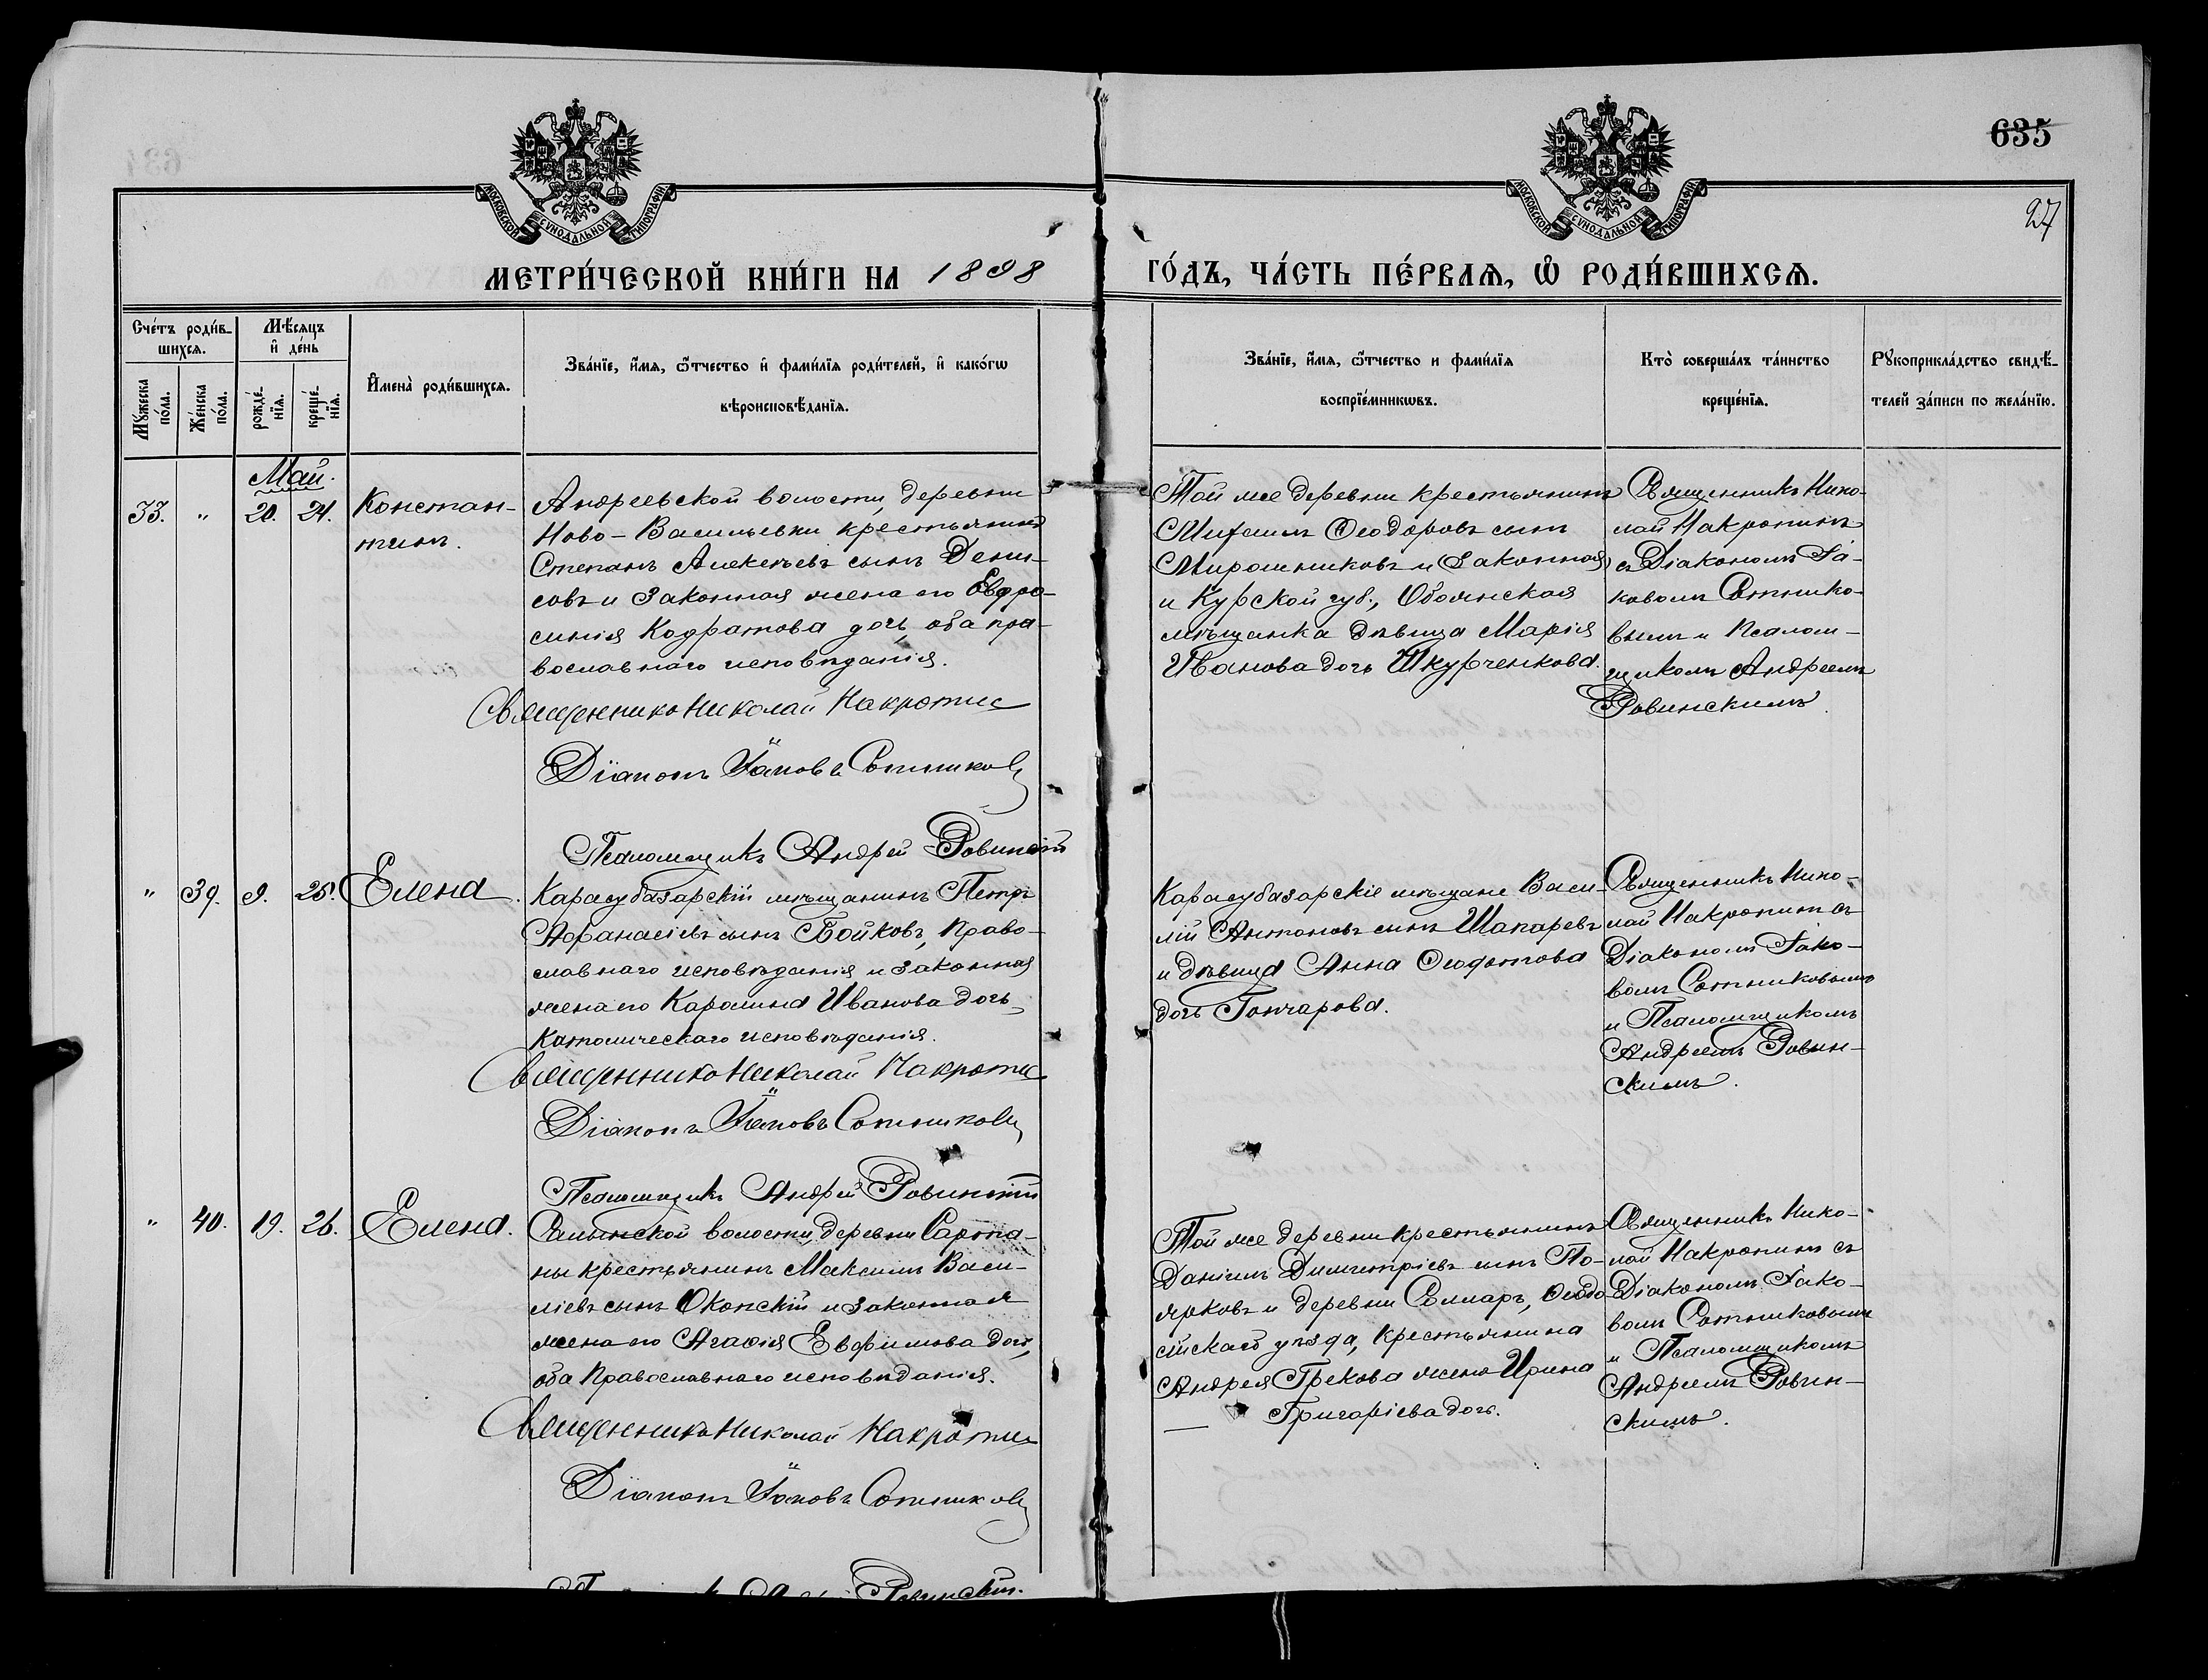 635
27
МОСКОВСКОЙ СѴНОДАЛЬНОЙ ТИПОГРАФІИ
МОСКОВСКОЙ СѴНОДАЛЬНОЙ ТИПОГРАФІИ
МЕТРИ́ЧЕСКОЙ КНИ́ГИ НА 1898
ГО́ДЪ, ЧА́СТЬ ПЕ́РВАѦ, Ѽ РОДИ́ВШИХСѦ.
Сче́тъ роди́в-
шихсѧ.
Мѣ́сѧцъ
и҆ де́нь
Мꙋжеска
по́ла.
Же́нска
по́ла.
рожде́-
нїѧ.
креще́-
нїѧ.
И҆мена̀ роди́вшихсѧ.
Зва́нїе, и҆́мѧ, ѻ҆́тчество и҆ фами́лїѧ роди́телей, и҆ како́гѡ
вѣроисповѣ́данїѧ.
Зва́нїе, и҆́мѧ, ѻ҆́тчество и фами́лїѧ
воспрїе́мникѡвъ.
Кто̀ соверша́лъ та́инство
креще́нїѧ.
Рꙋкоприкла́дство свидѣ́-
телей за́писи по жела́нїю.
Май.
33. " 20. 24.
Констан-
тинъ.
Андреевской волости, деревни
Ново-Васильевки крестьянинъ
Степанъ Алексѣевъ сынъ Дени-
совъ и законная жена его Евдро-
синія Кодратова дочь, оба пра-
вославнаго исповѣданія.
Священникъ Николай Накропин
Діаконъ Іаковъ Сотников
Псаломщикъ Андрей Ровинскій
Той же деревни крестьянинъ
Михаилъ Ѳеодоровъ сынъ
Мирошниковъ и (законная)
и Курской губ., Обоянская
мѣщанка дѣвица Марія
Иванова дочь Шкурченкова.
Священникъ Нико-
лай Накропинъ
съ Діакономъ Іа-
ковомъ Сотнико-
вымъ и Псалом-
щикомъ Андреемъ
Ровинскимъ.
" 39. 9. 25.
Елена.
Карасубазарскій мѣщанинъ Петръ
Афанасіевъ сынъ Бойковъ, право-
славнаго исповѣданія и законная
жена его Каролина Иванова дочь,
католическаго исповѣданія.
Священникъ Николай Накропин
Діаконъ Іаковъ Сотников
Псаломщикъ Андрей Ровинскій
Карасубазарскіе мѣщане Васи-
лій Антоновъ сынъ Шапаревъ
и дѣвица Анна Ѳеодотова
дочь Гончарова.
Священникъ Нико-
лай Накропинъ съ
Діакономъ Іако-
вомъ Сотниковымъ
и Псаломщикомъ
Андреемъ Ровин-
скимъ.
" 40. 19. 26.
Елена.
Салынской волости, деревни Сарта-
ны крестьянинъ Максимъ Васи-
ліевъ сынъ Оконскій и законная
жена его Агаѳія Евфимова дочь,
оба Православнаго исповѣданія.
Священникъ Николай Накропин
Діаконъ Іаковъ Сотников
Той же деревни крестьянинъ
Даніилъ Димитріевъ сынъ По-
ярковъ и деревни Сеитаръ, Ѳеодо-
сійскаго уѣзда, крестьянина
Андрея Грекова жена Ирина
Григоріева дочь.
Священникъ Нико-
лай Накропинъ съ
Діакономъ Іако-
вомъ Сотниковымъ
и Псаломщикомъ
Андреемъ Ровин-
скимъ.